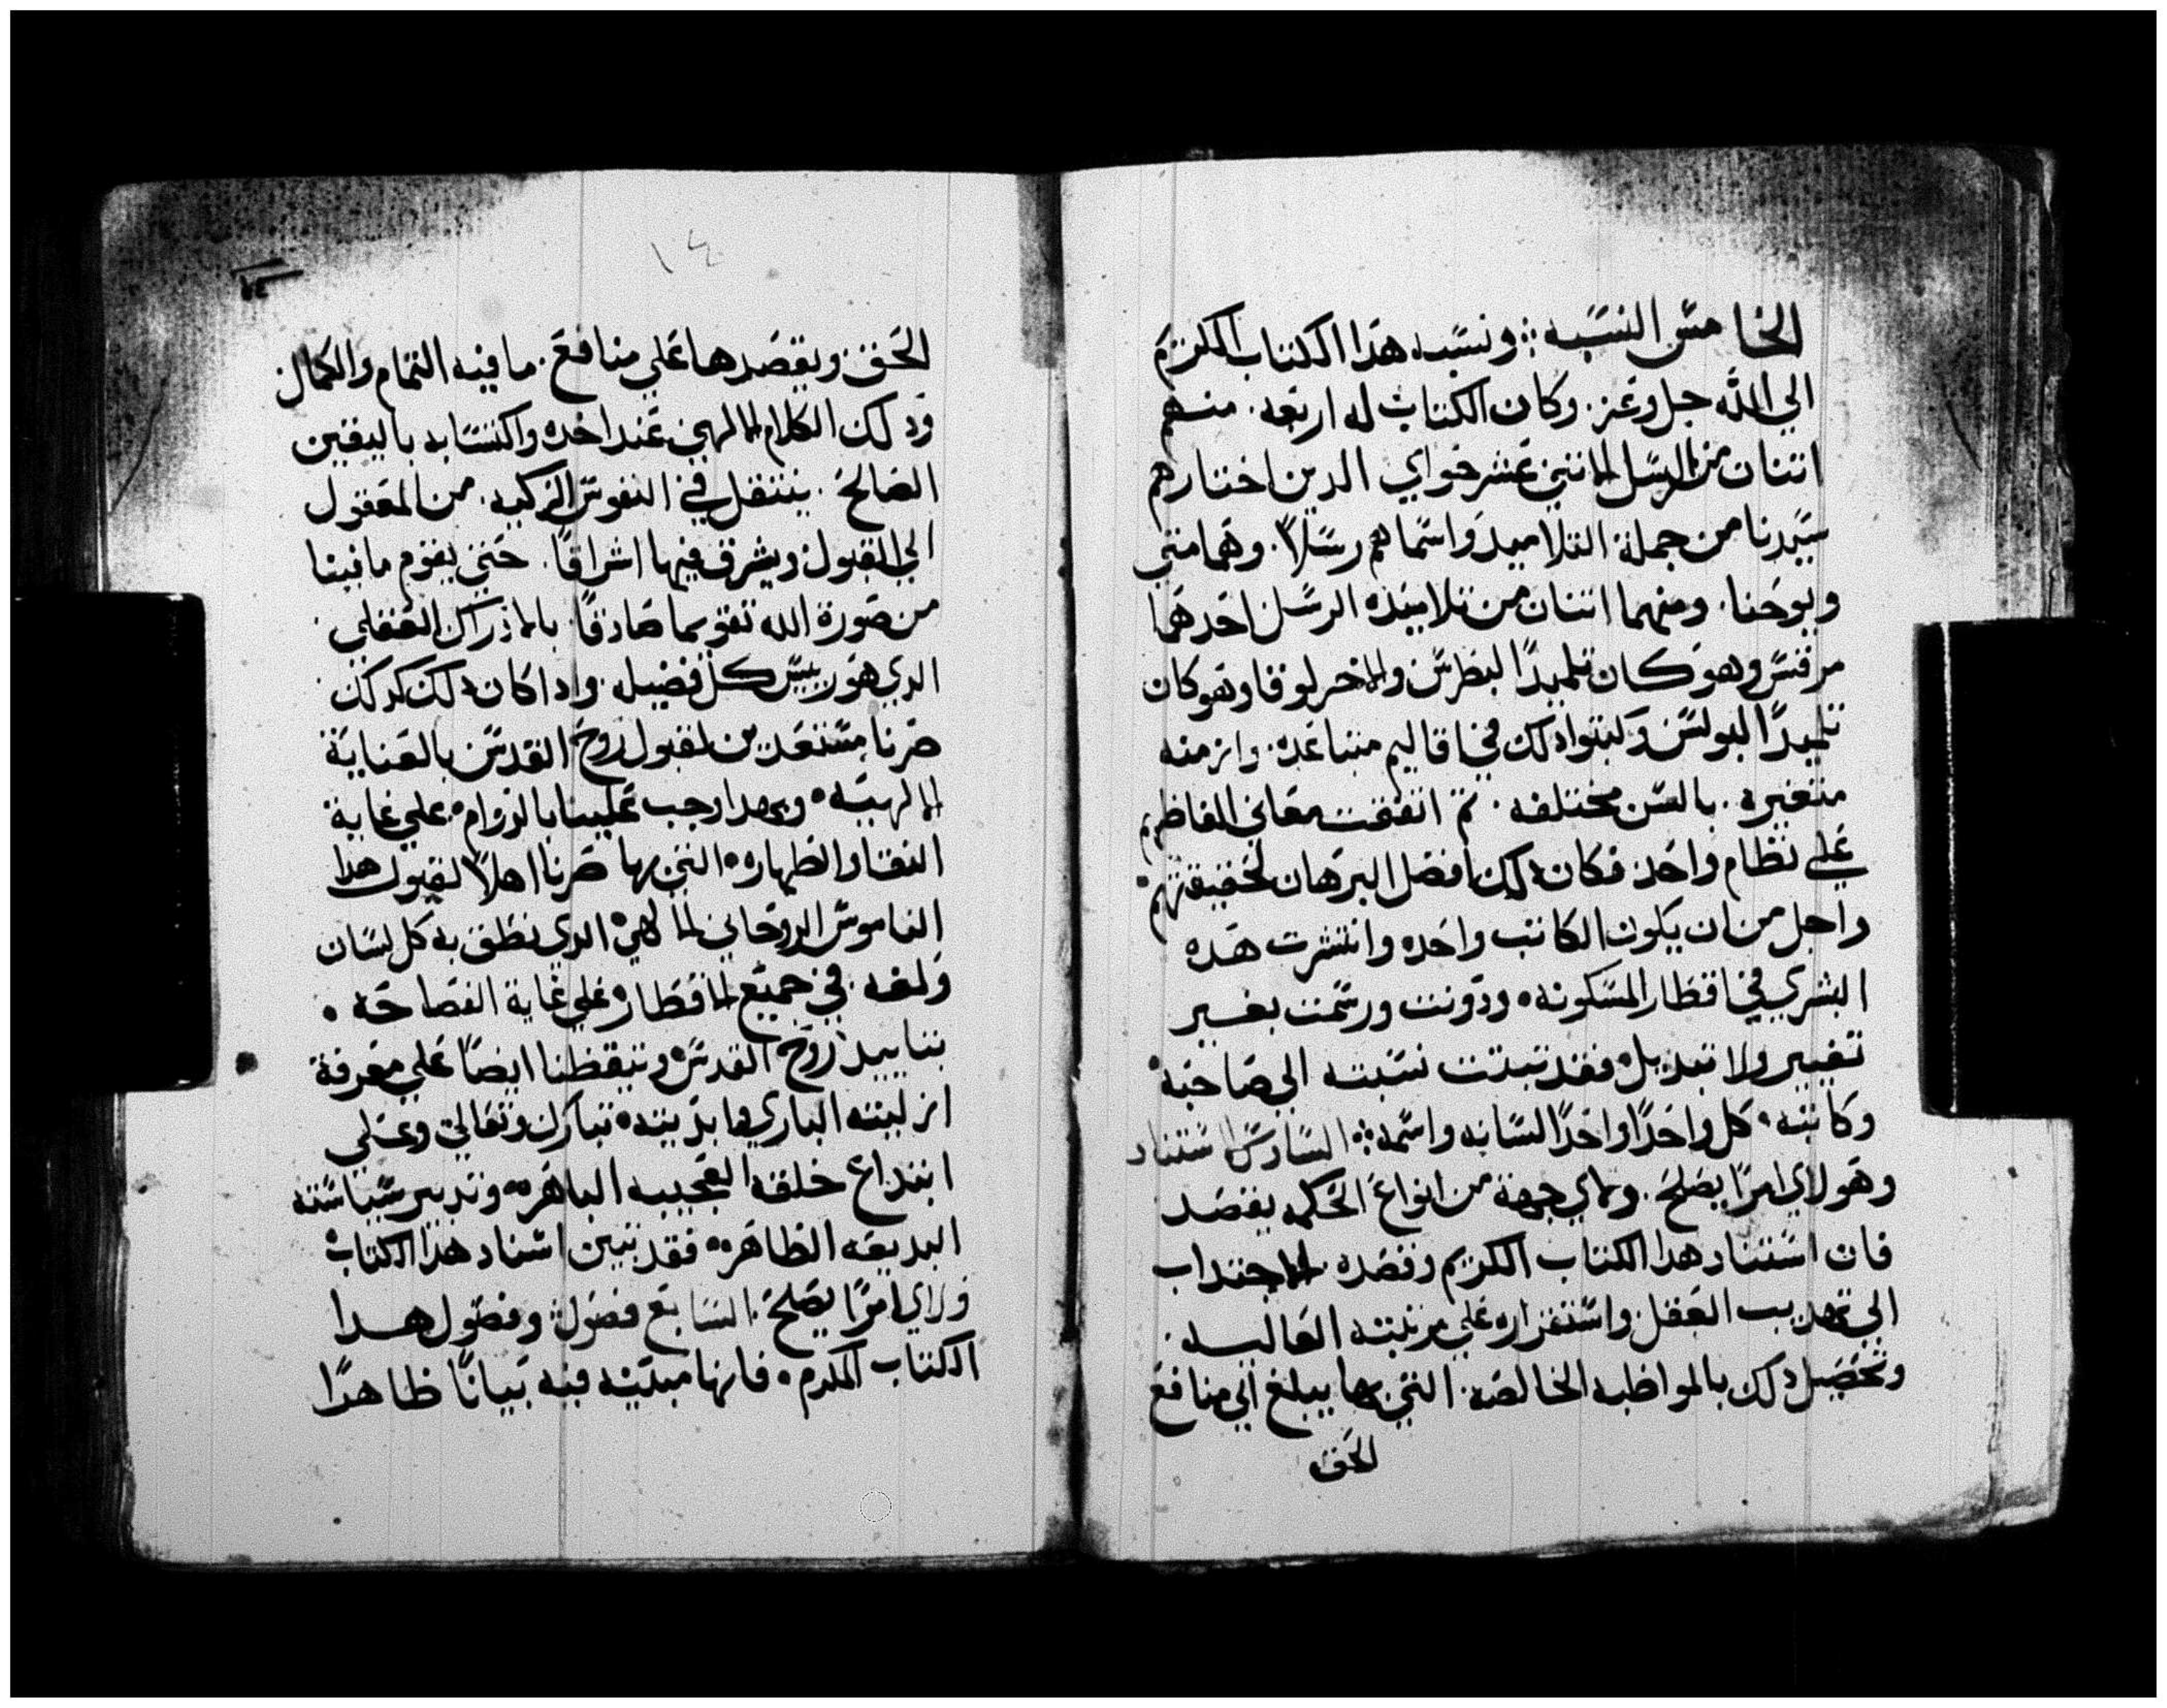 الخامس النسبه ؛ ونسبه هدا الكتاب الكريم
الي الله جل وعز . وكان الكتاب له اربعه . منهم
اتنان من الرسل الاتني عشر حواي الدين اختارهم
سيدنا من جملة التلاميد واسماهم رسلاً . وهما متي
ويوحنا . ومنهما اتنان من تلاميذه الرسل احدهما
مرقس وهو كان تلميدًا لبطرس والاخر لوقا وهو كان
تلميدًا لبولس وكتبوا دلك في اقاليم متباعده . وازمنه
متغيره . بالسن مختلفه . تم اتفقت معاني الفاظهم
علي نظام واحد فكان دلك افضل البرهان لحقيقتهم
واجل من ان يكون الكاتب واحده وانتشرت هده
البشري في اقطار المسكونه . ودونت ورسمت بغير
تغيير ولا تبديل . فقد تبتت نسبته الي صاحبه
وكاتبه . كل واحدًا واحدًا لسانه واسمه ؛ السادس استناد
وهو لاي امرًا يصلح . ولاي جهة من انواع الحكمه يقصد
فان استناد هدا الكتاب الكريم وقصده الاجتداب
الي تهديب العقل واستقراره علي مرتبته العاليه .
وتحصيل دلك بالمواظبه الخالصه . التي بها يبلغ الي منافع
الحق
١٤
الحق ويقصدها علي منافع . ما فيه التمام والكمال
ودلك الكلام الالهي عند اخده واكتسابه باليقين
الصالح . ينتقل في النفوس الزكيه . من المعقول
الي القبول ويشرق فيها اشراقًا . حتي يقوم ما فينا
من صورة الله تقويما صادقًا . بالادراك العقلي .
الدي هو رييس كل فضيله . وادا كان دلك كدلك
صرنا مستعدين لقبول روح القدس بالعناية
الالهيه . وبهدا وجب علينا بالدوام . علي غاية
النقا والطهاره . التي بها صرنا اهلاً لقبول هدا
الناموس الروحاني الالهي . الدي نطق به كل لسان
ولغه . في جميع الاقطار علي غاية الفصاحه .
بتاييد روح القدس . وتيقظنا ايضًا علي معرفة
ازليته الباري وابديته . تبارك وتعالي وعلي
ابتداع خلقه العجيبه الباهره . وتدبير سياسته
البديعه الظاهره . فقد تبين اسناد هدا الكتاب
ولاي امرًا يصلح . السابع فصول ؛ وفصول هدا
الكتاب المكرم . فانها مبينه فيه بيانًا ظاهرًا